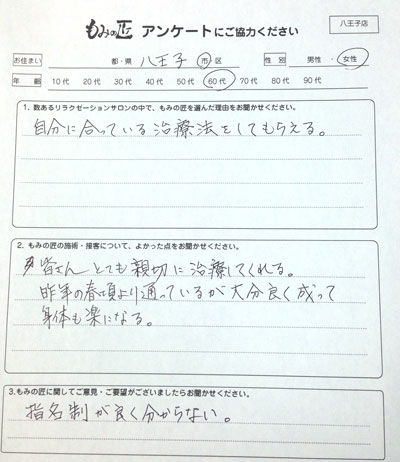 八王子店
もみの匠 アンケートにご協力ください
お住まい 都・県 八王子 市 区 性別 男性・女性
年齢 10代 20代 30代 40代 50代 60代 70代 80代 90代
1. 数あるリラクゼーションサロンの中で、もみの匠を選んだ理由をお聞かせください。
自分に合っている治療法をしてもらえる。
2. もみの匠の施術・接客について、よかった点をお聞かせください。
皆さんとても親切に治療してくれる。
昨年の春頃より通っているが大分良く成って
身体も楽になる。
3.もみの匠に関してご意見・ご要望がございましたらお聞かせください。
指名制が良く分からない。